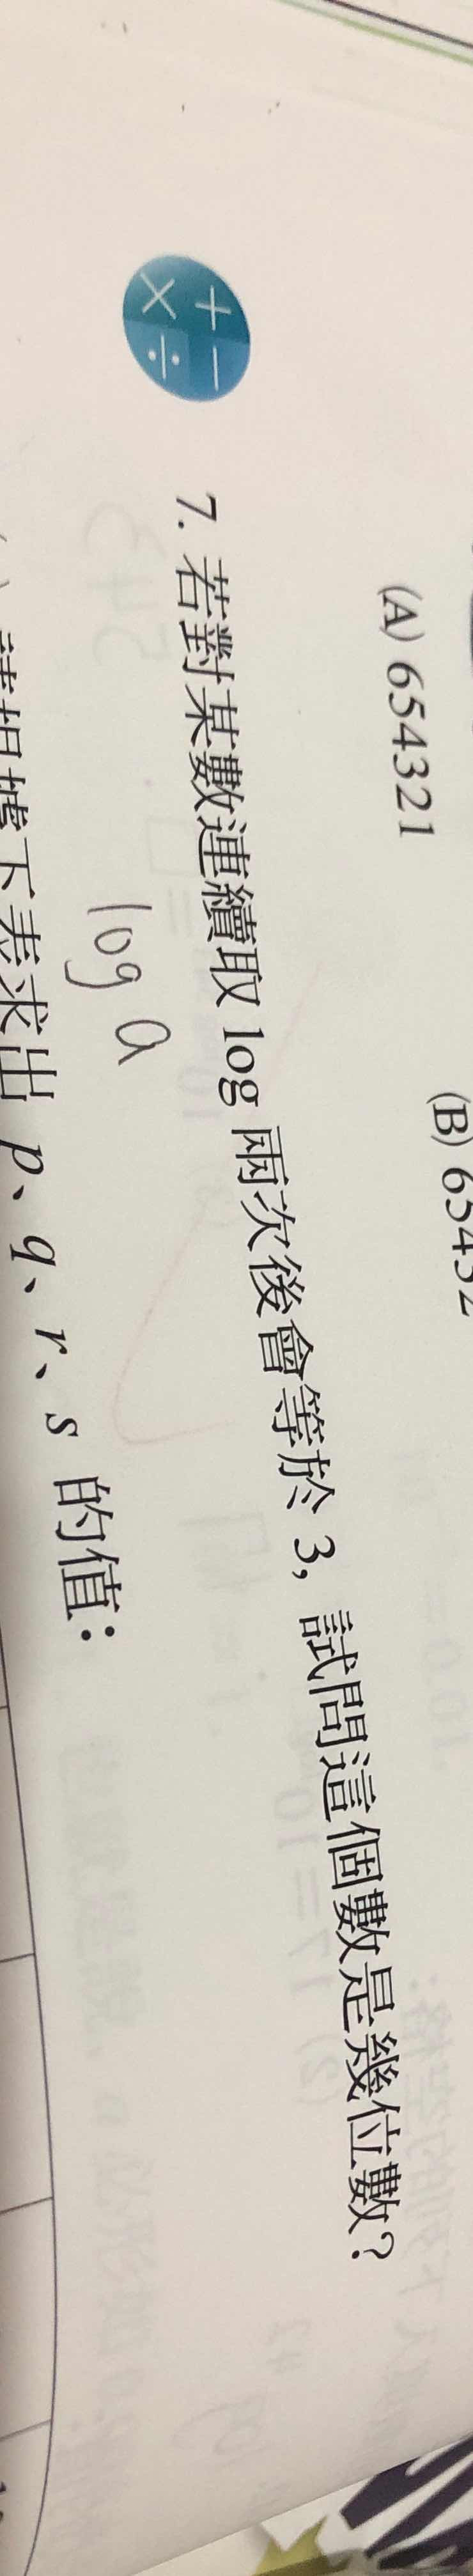 (A) 654321 (B) 65432
7. 若對某數連續取 log 兩次後會等於 3, 試問這個數是幾位數?
log a
請根據下表求出 p、q、r、s 的值: